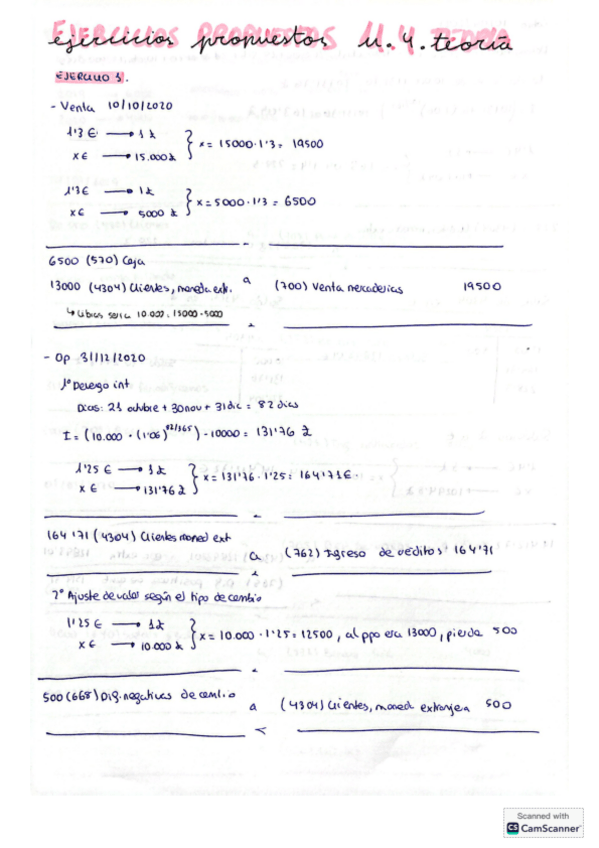 EJERCICIOS PROPUESTOS U.4. TEORIA
ejercicios propuestos U.4. teoría
EJERCICIO 1.
- Venta 10/10/2020
1'3 € → 1 £
x € → 15.000 £
x = 15000 · 1'3 = 19500
1'3 € → 1 £
x € → 5000 £
x = 5000 · 1'3 = 6500
6500 (570) Caja
13000 (4304) Clientes, moneda extr. a (700) Venta mercaderías 19500
↳ Libras sería 10.000 = 15000 - 5000
- Op 31/12/2020
1º Devengo int
Días: 21 octubre + 30 nov + 31 dic = 82 días
I = (10.000 · (1'06)^82/365) - 10000 = 131'76 £
1'25 € → 1 £
x € → 131'76 £
x = 131'76 · 1'25 = 164'71 €.
164'71 (4304) Clientes moned ext
a (762) Ingreso de créditos 164'71
2º Ajuste de valor según el tipo de cambio
1'25 € → 1 £
x € → 10.000 £
x = 10.000 · 1'25 = 12500, al ppo era 13000, pierdo 500
500 (668) Dif. negativas de cambio
a (4304) Clientes, moned extranjera 500
Scanned with
CS CamScanner